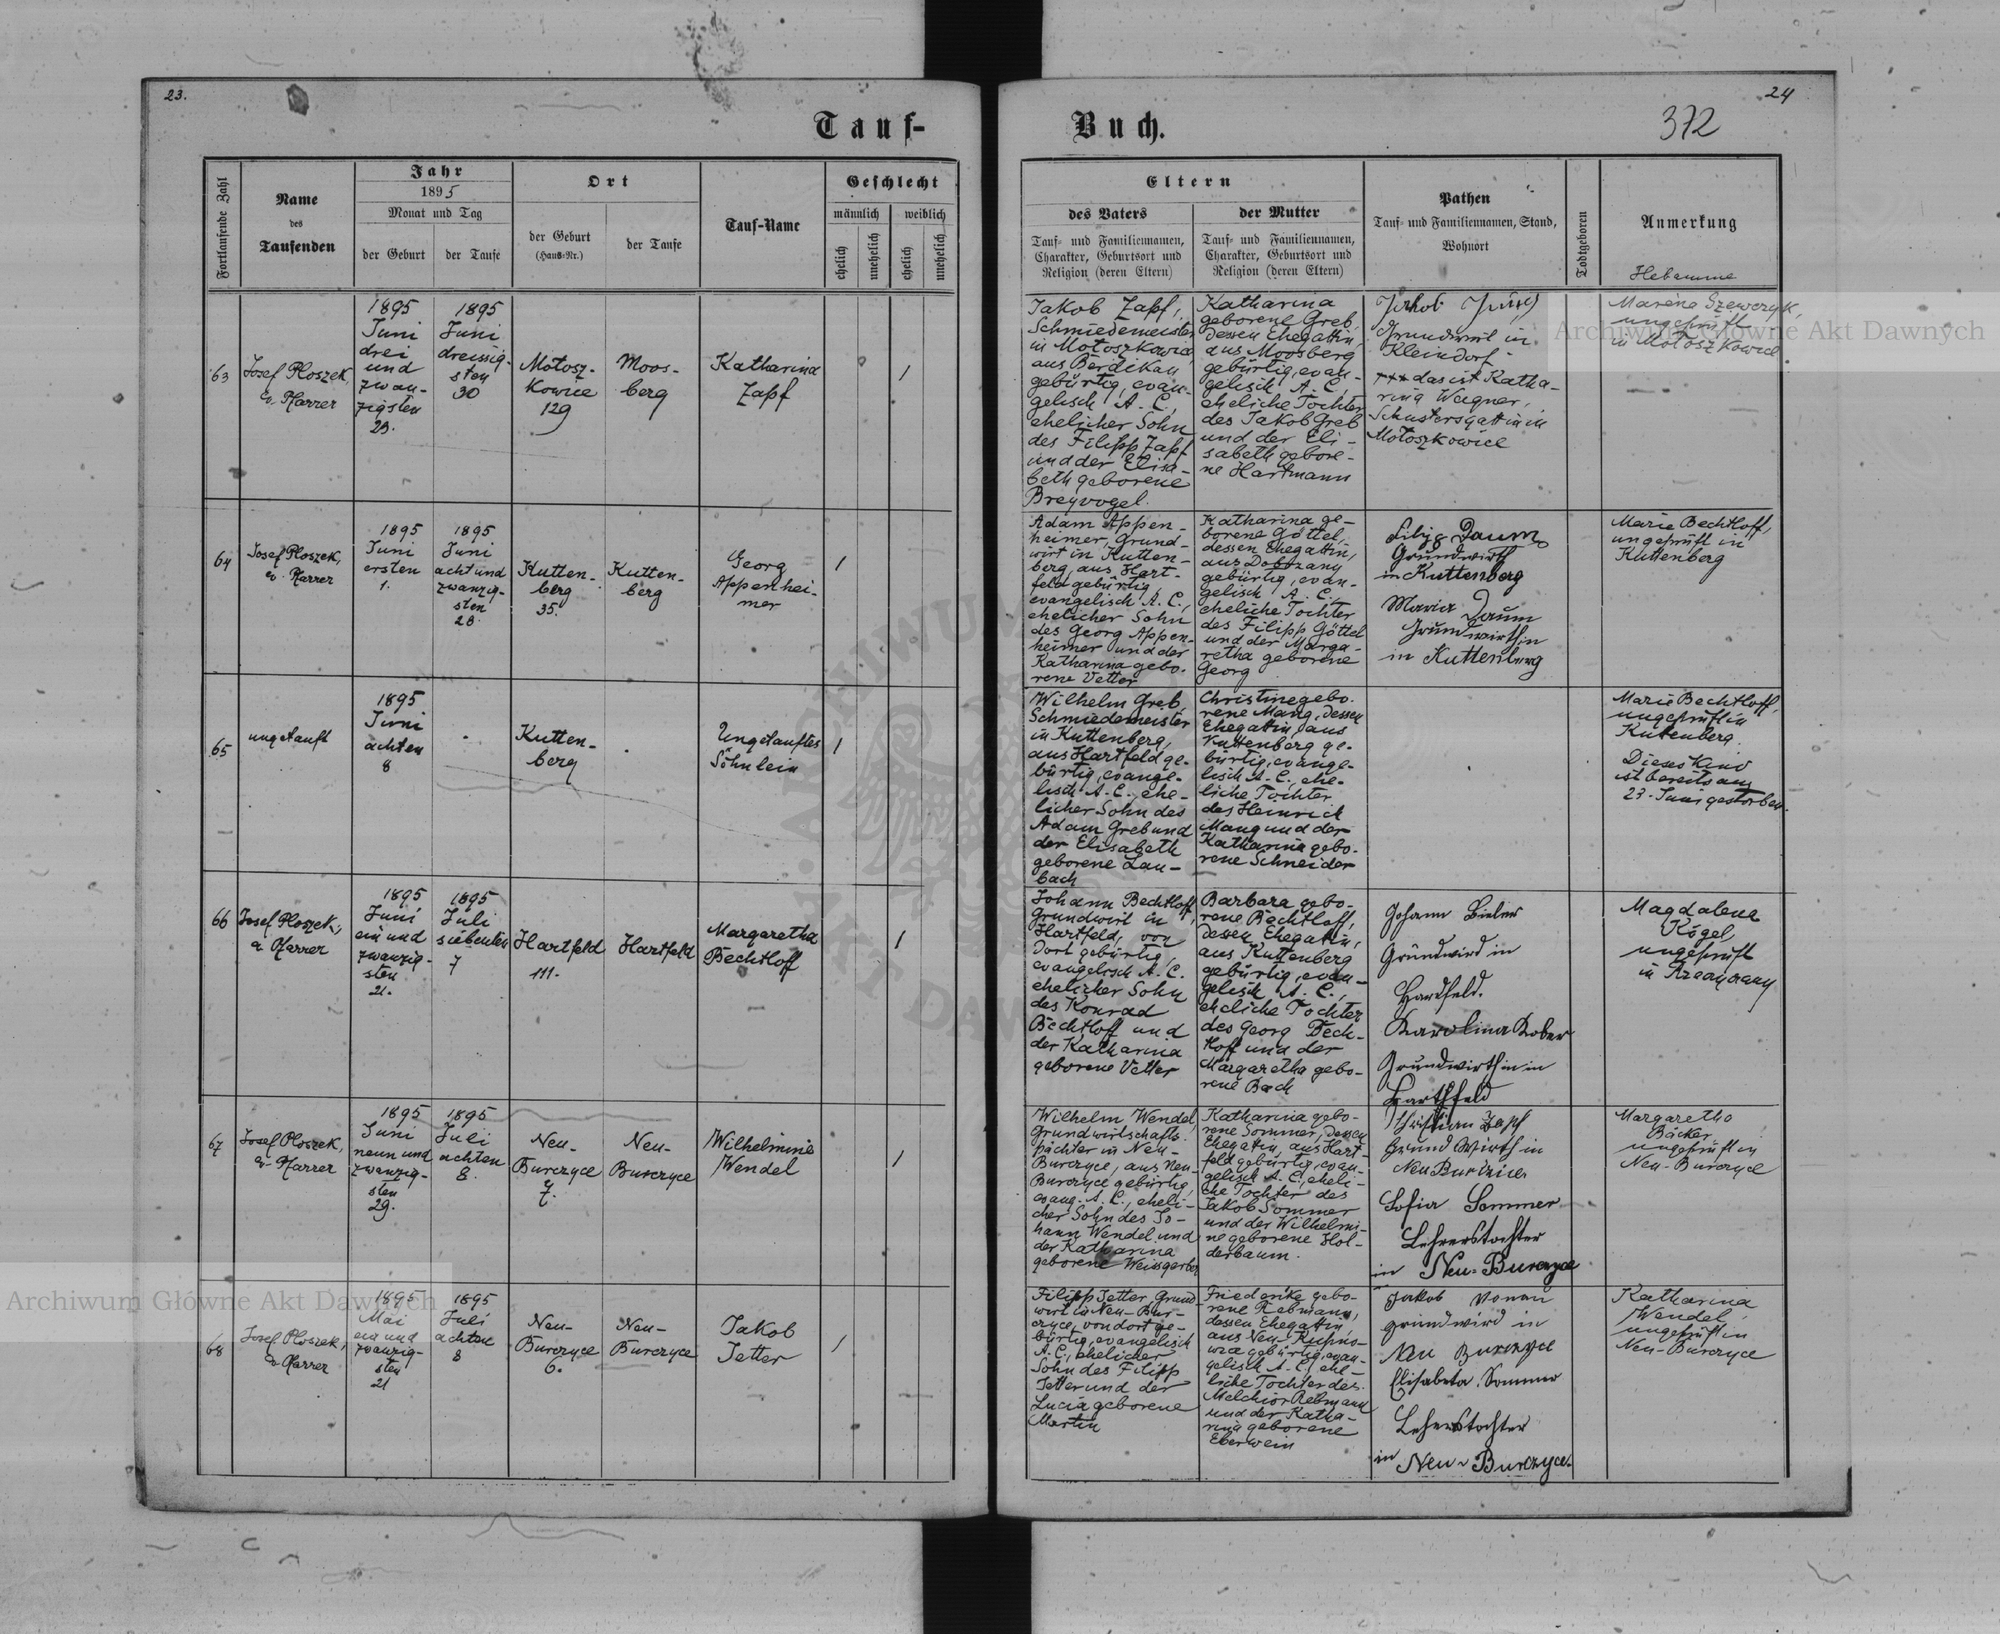 23.
24
372
Tauf-
Buch.
Fortlaufende Zahl
Name
des
Taufenden
Jahr
1895
Monat und Tag
der Geburt
der Taufe
Ort
der Geburt
(Haus-Nr.)
der Taufe
Tauf-Name
Geschlecht
männlich
weiblich
ehelich
unehelich
ehelich
unehelich
Eltern
des Vaters
Tauf- und Familiennamen,
Charakter, Geburtsort und
Religion (deren Eltern)
der Mutter
Tauf- und Familiennamen,
Charakter, Geburtsort und
Religion (deren Eltern)
Pathen
Tauf- und Familiennamen, Stand,
Wohnort
Todtgeboren
Anmerkung
Hebamme
63
Josef Ploszek,
ev. Pfarrer
1895
Juni
drei
und
zwan-
zigsten
23.
1895
Juni
dreissig-
sten
30
Mołosz-
kowice
129
Moos-
berg
Katharina
Zapf
1
Jakob Zapf,
Schmiedemeister
in Mołoszkowice
aus Berdikau
gebürtig, evan-
gelisch A. C.,
ehelicher Sohn
des Filipp Zapf
und der Elisa-
beth geborene
Breyvogel.
Katharina
geborene Greb,
dessen Ehegattin,
aus Moosberg
gebürtig, evan-
gelisch A. C.,
eheliche Tochter
des Jakob Greb
und der Eli-
sabeth gebore-
ne Hartmann
Jakob
Grundwirt in
Kleindorf
+++ das ist Katha-
rina Wagner,
Schustersgattin in
Mołoszkowice
Marina Szewczyk,
ungeprüft
in Mołoszkowice
64
Josef Ploszek,
ev. Pfarrer
1895
Juni
ersten
1.
1895
Juni
acht und
zwanzig-
sten
28.
Kutten-
berg
35.
Kutten-
berg
Georg
Appenhei-
mer
1
Adam Appen-
heimer, Grund-
wirt in Kutten-
berg, aus Hart-
feld gebürtig
evangelisch A. C.,
ehelicher Sohn
des Georg Appen-
heimer und der
Katharina gebo-
rene Vetter
Katharina ge-
borene Göttel,
dessen Ehegattin,
aus Dobrzany
gebürtig, evan-
gelisch A. C.,
eheliche Tochter
des Filipp Göttel
und der Marga-
retha geborene
Georg
Filipp Daum
Grundwirth
in Kuttenberg
Maria Daum
Grundwirthin
in Kuttenberg
Marie Bechtloff,
ungeprüft in
Kuttenberg
65
ungetauft
1895
Juni
achten
8
Kutten-
berg
Ungetauftes
Söhnlein
1
Wilhelm Greb,
Schmiedemeister
in Kuttenberg,
aus Hartfeld ge-
bürtig, evange-
lisch A. C., ehe-
licher Sohn des
Adam Greb und
der Elisabeth
geborene Lau-
bach
Christine gebo-
rene Mang, dessen
Ehegattin, aus
Kuttenberg ge-
bürtig, evange-
lisch A. C., ehe-
liche Tochter
des Heinrich
Mang und der
Katharina gebo-
rene Schneider
Marie Bechtloff,
ungeprüft in
Kuttenberg.
Dieses Kind
ist bereits am
23. Juni gestorben.
66
Josef Ploszek,
ev. Pfarrer
1895
Juni
ein und
zwanzig-
sten
21.
1895
Juli
siebenten
7
Hartfeld
111.
Hartfeld
Margaretha
Bechtloff
1
Johann Bechtloff,
Grundwirt in
Hartfeld, von
dort gebürtig,
evangelisch A. C.
ehelicher Sohn
des Konrad
Bechtloff und
der Katharina
geborene Vetter
Barbara gebo-
rene Bechtloff,
dessen Ehegattin,
aus Kuttenberg
gebürtig, evan-
gelisch A. C.,
eheliche Tochter
des Georg Bech-
tloff und der
Margaretha gebo-
rene Bach
Johann Bieber
Grundwird in
Hardfeld.
Karolina Kober
Grundwirthin in
Harthfeld
Magdalena
Kögel,
ungeprüft
in
67
Josef Ploszek,
ev. Pfarrer
1895
Juni
neun und
zwanzig-
sten
29.
1895
Juli
achten
8.
Neu-
Burczyce
7.
Neu-
Burczyce
Wilhelmine
Wendel
1
Wilhelm Wendel,
Grundwirtschafts-
pächter in Neu-
Burczyce, aus Neu-
Burczyce gebürtig,
evang. A. C., eheli-
cher Sohn des Jo-
hann Wendel und
der Katharina
geborene Weissgerber
Katharina gebo-
rene Sommer, dessen
Ehegattin, aus Hart-
feld gebürtig, evan-
gelisch A. C., eheli-
che Tochter des
Jakob Sommer
und der Wilhelmi-
ne geborene Hol-
derbaum.
Christian Zapf
Grund Wirth in
Neu Burczice
Sofia Sommer
Lehrerstochter
in Neu-Burczyce
Margaretha
Bäcker,
ungeprüft in
Neu-Burczyce
68
Josef Ploszek,
ev. Pfarrer
1895
Mai
ein und
zwanzig-
sten
21
1895
Juli
achten
8
Neu-
Burczyce
6.
Neu-
Burczyce
Jakob
Jetter
1
Filipp Jetter, Grund-
wirt in Neu-Bur-
czyce, von dort ge-
bürtig, evangelisch
A. C., ehelicher
Sohn des Filipp
Jetter und der
Lucia geborene
Martin
Friederike gebo-
rene Rebmann,
dessen Ehegattin
aus Neu-Kupno-
wice gebürtig, evan-
gelisch A. C., ehe-
liche Tochter des
Melchior Rebmann
und der Katha-
rina geborene
Eberwein
Jakob Vonau
grundwird in
Neu Burczyce
Elisabeta Sommer
Lehrerstochter
in Neu-Burczyce.
Katharina
Wendel,
ungeprüft in
Neu-Burczyce
Archiwum Główne Akt Dawnych
Archiwum Główne Akt Dawnych